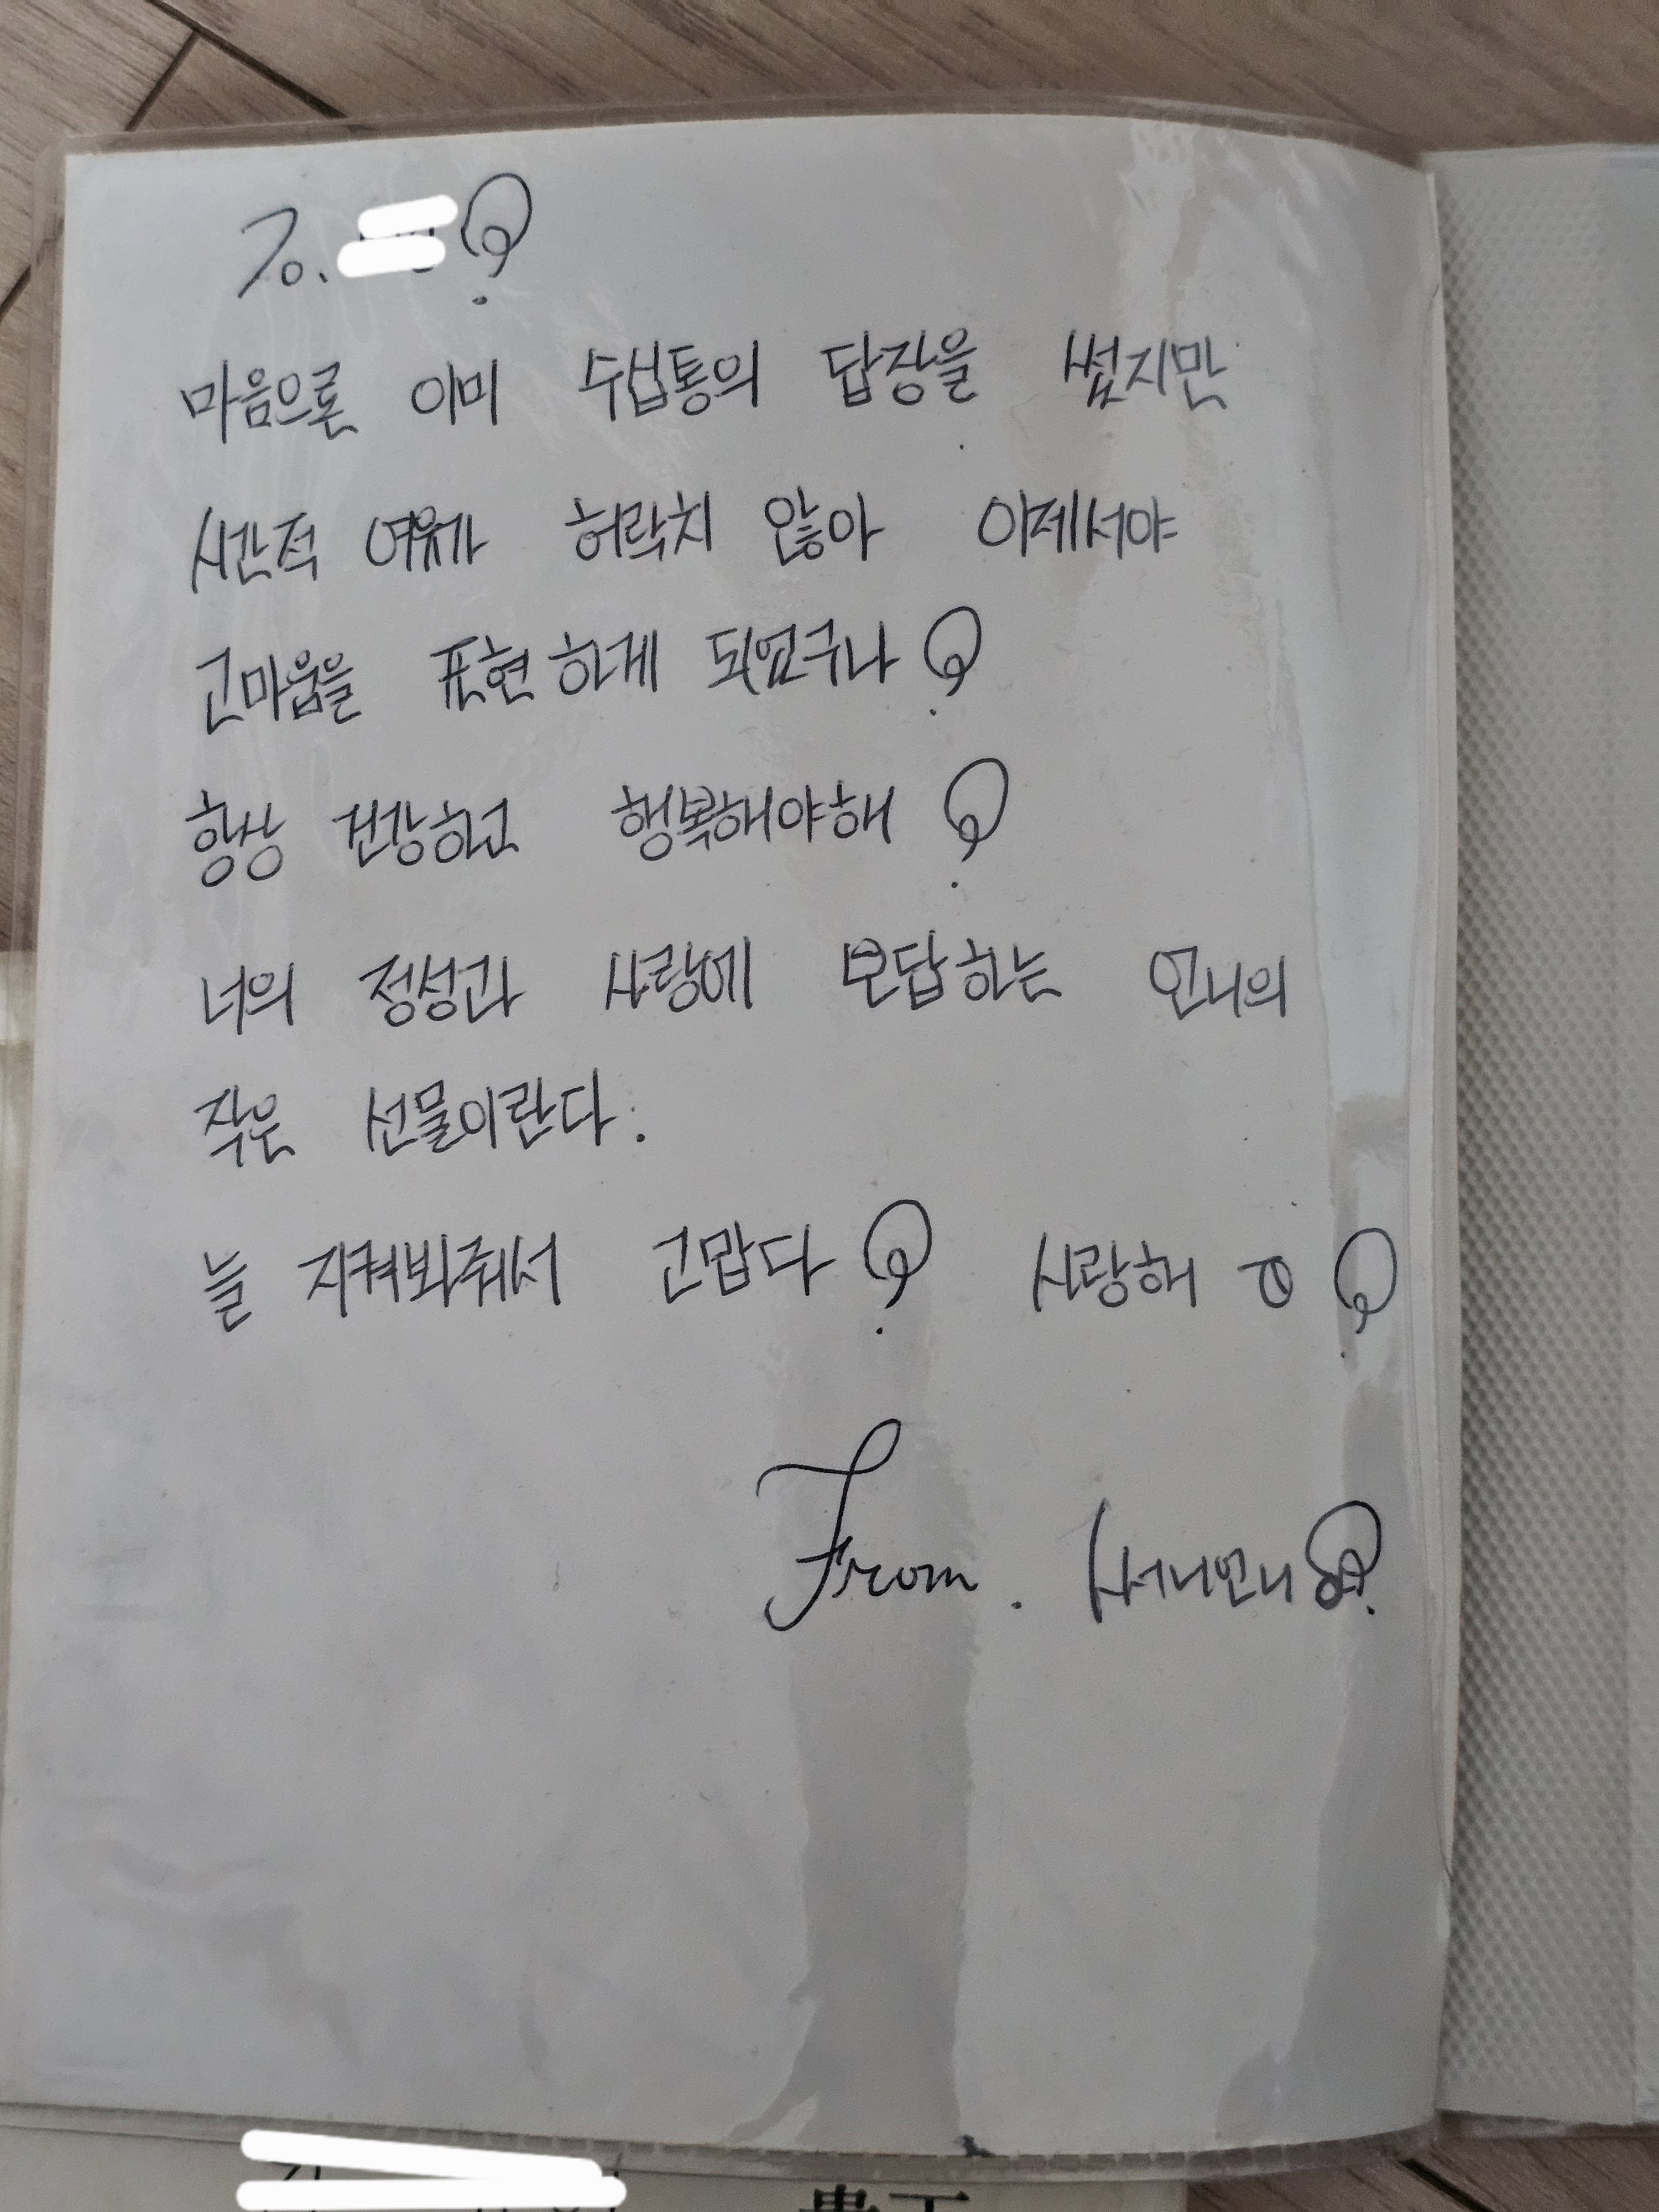 To.
마음으론 이미 수십통의 답장을 썼지만
시간적 여유가 허락치 않아 이제서야
고마움을 표현하게 되었구나!
항상 건강하고 행복해야해!
너의 정성과 사랑에 보답하는 언니의
작은 선물이란다.
늘 지켜봐줘서 고맙다! 사랑해
From. 써니언니!
貴下